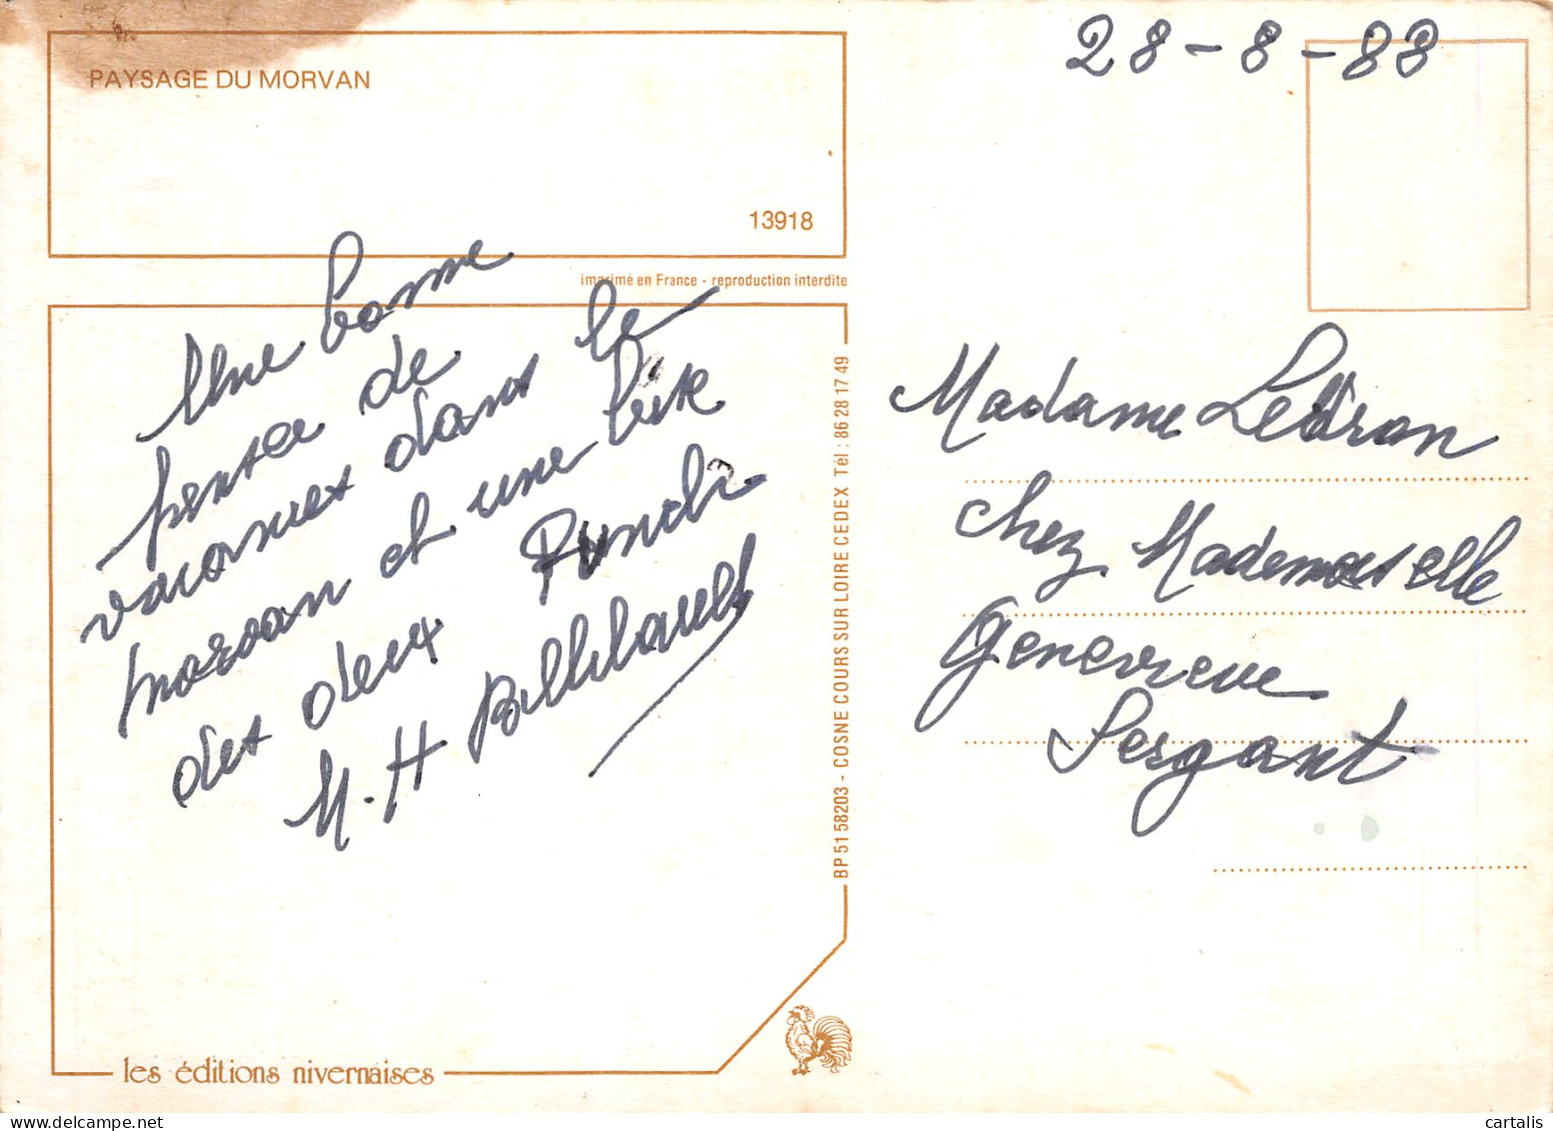 28-8-88
PAYSAGE DU MORVAN
13918
imprimé en France - reproduction interdite
Une bonne
pensée de
vacances dans le
morvan et une bise
des deux
M. H Billebault
BP 51 58203 - COSNE COURS SUR LOIRE CEDEX Tél : 86 28 17 49
Madame Ledran
chez Mademoiselle
Geneviève
Sergant
les éditions nivernaises
cartalis